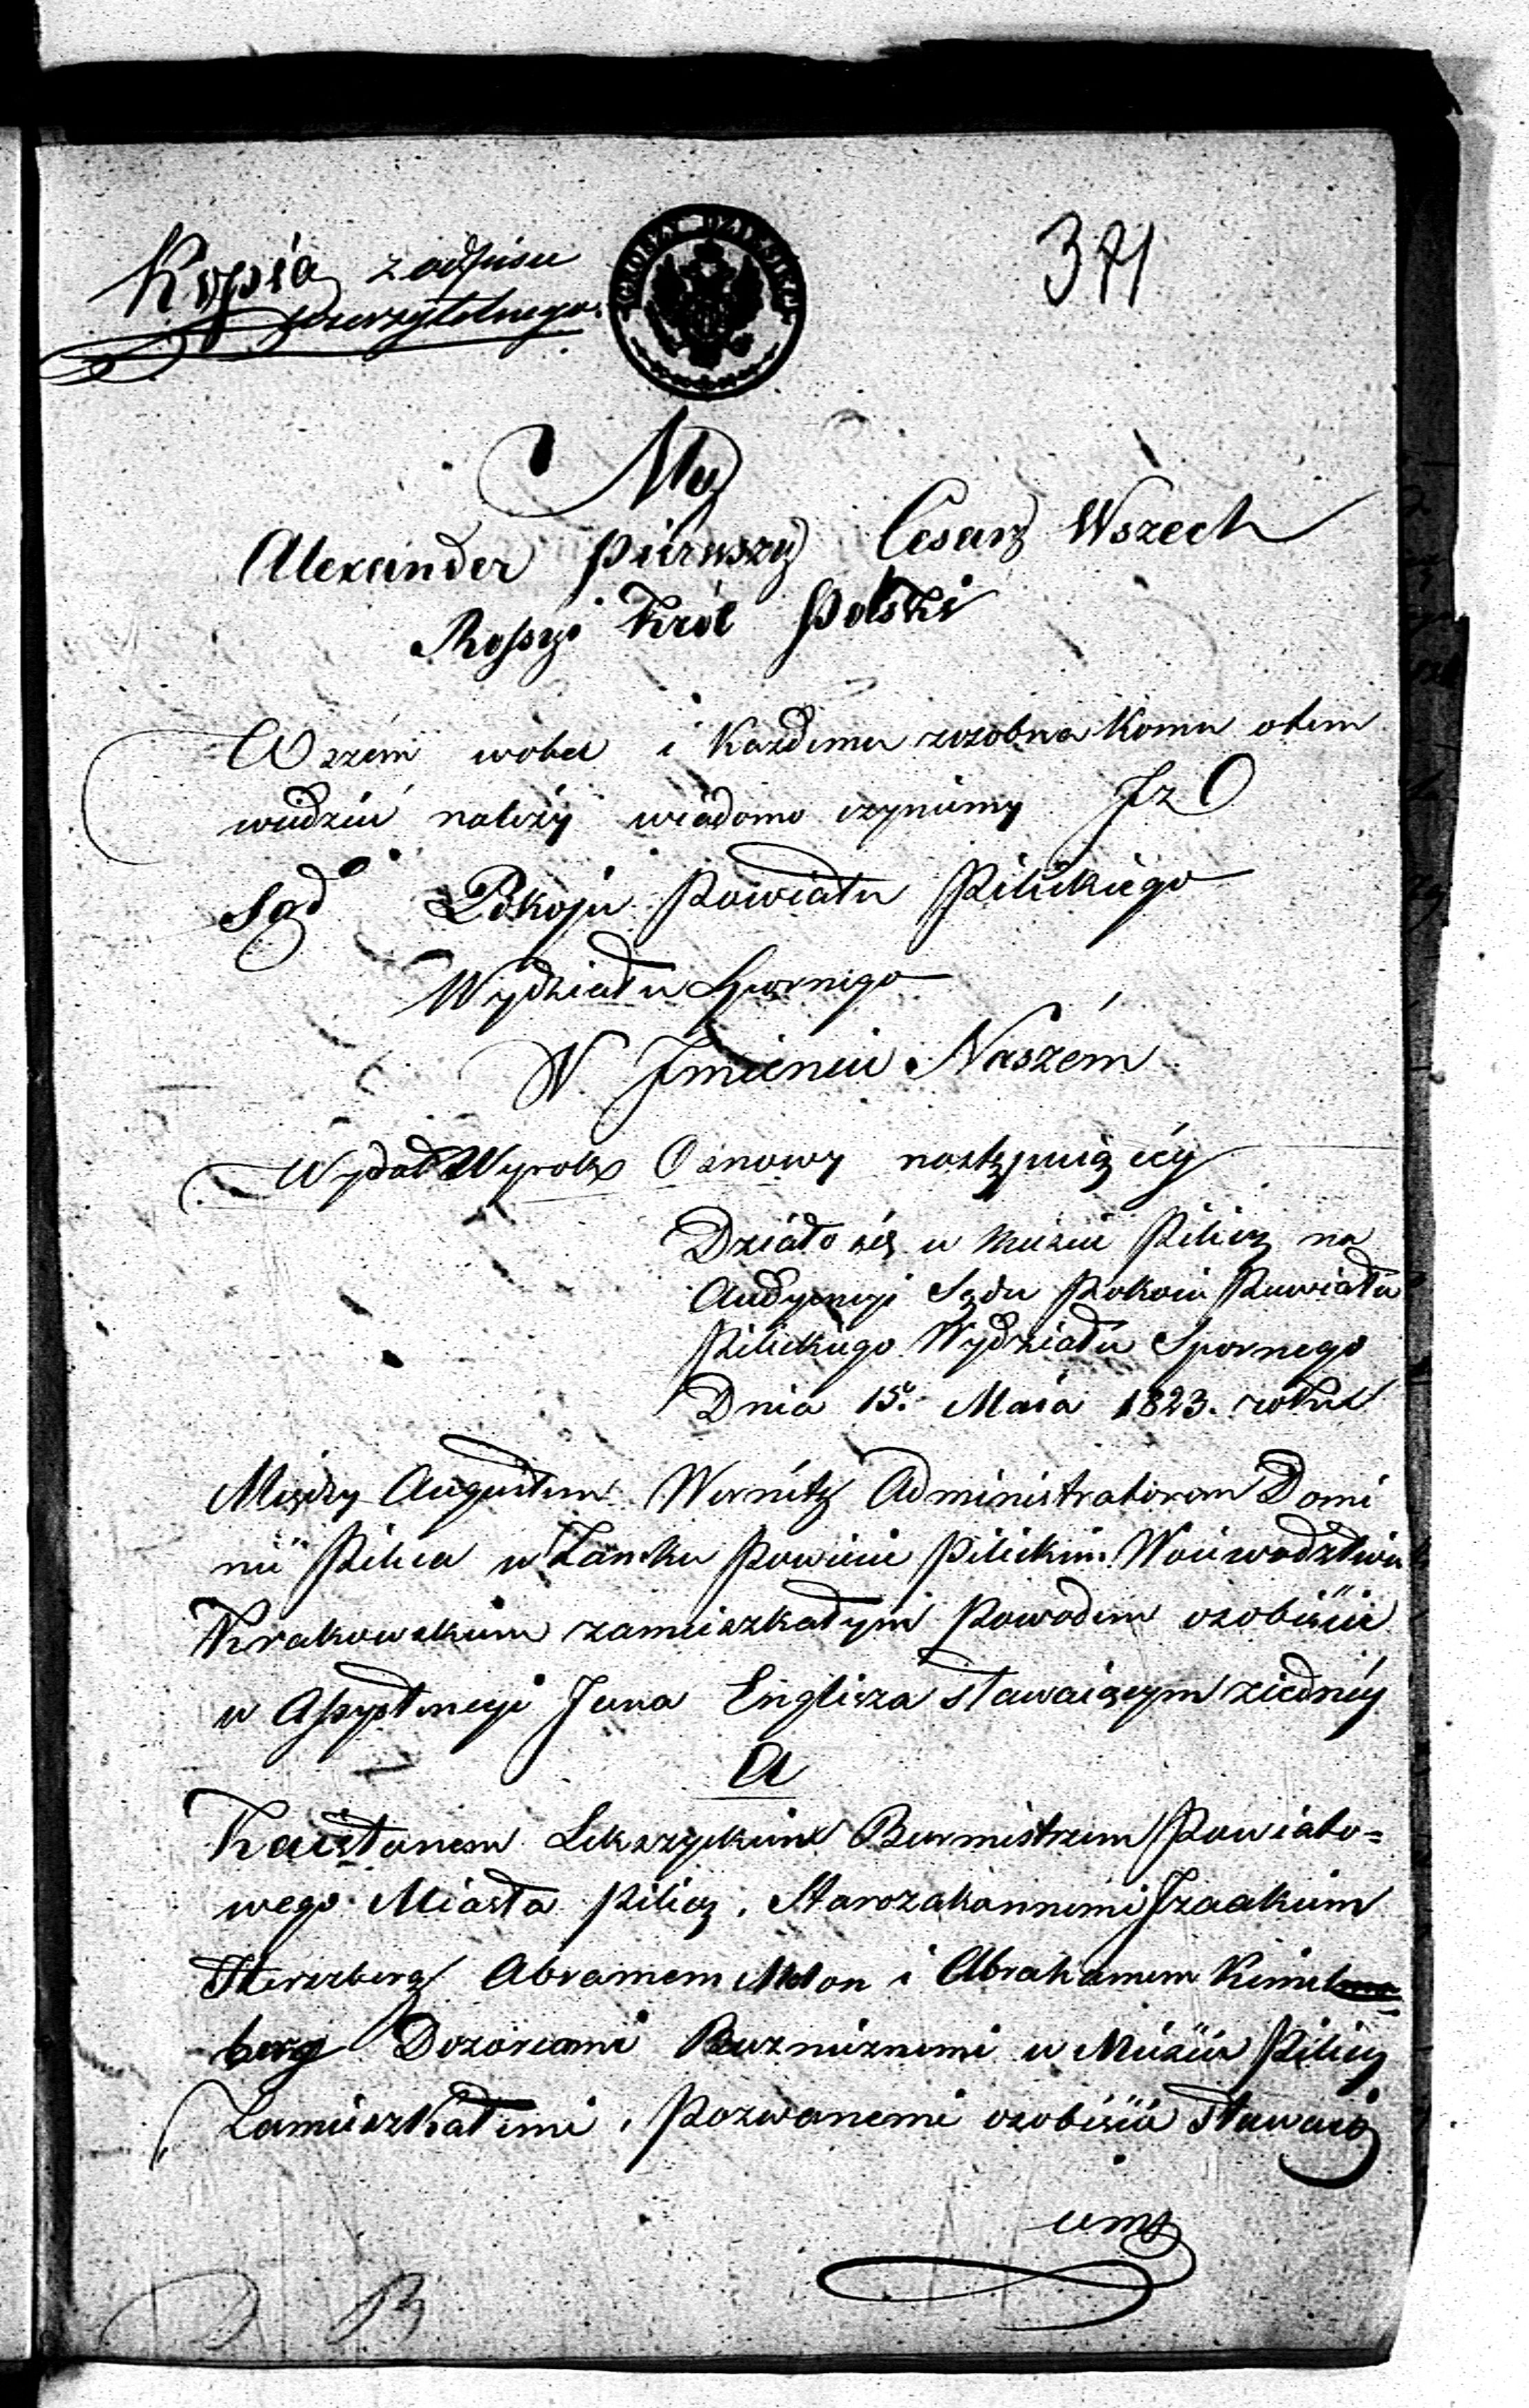 371
Kopia z odpisu
wierzytelnego.
GROSZY DZIESIĘĆ
My
Alexander Pierwszy Cesarz Wszech
Rossyi Król Polski
Wszem wobec i Każdemu zosobna Komu otem
wiedzieć należy wiadomo czyniemy Iż
Sąd Pokoju Powiatu Pilickiego
Wydziału Spornego
W Imieniu Naszém
Wydał Wyrok Osnowy następuiącéy
Działo się w Mieście Pilicy na
Audyencyi Sądu Pokoiu Powiatu
Pilickiego Wydziału Spornego
Dnia 15. Maia 1823. roku
Między Augustem Wernitz Administratorem Domi
nii Pilica w Zamku Powiecie Pilickim Woiewództwie
Krakowskim zamieszkałym Powodem osobiście
w Assystencyi Jana Englisza stawaiącym ziednéy
A
Kaietanem Lekszyckim Burmistrzem Powiato=
wego Miasta Pilicy, Starozakonnemi Izaakiem
Herszberg Abramem Melon i Abrahamem Kimel
berg Dozorcami Bużniznemi w Mieście Pilicy
Zamieszkałemi, Pozwanemi osobiście stawaią
cemi